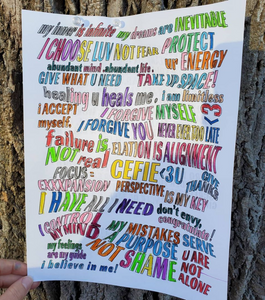 my inner is infinite my dreams are INEVITABLE
I CHOOSE LUV NOT FEAR. PROTECT
ur ENERGY
abundant mind. abundant life.
GIVE WHAT U NEED TAKE UP SPACE!
healing u heals me. I am limitless
I ACCEPT myself. I FORGIVE MYSELF <3
I FORGIVE YOU NEVER EVER TOO LATE
failure is NOT real
ELATION IS ALIGNMENT
FOCUS = EXXXPANSION
CEFIE <3U
GIVE THANKS
PERSPECTIVE IS MY KEY
I HAVE ALL I NEED
don't envy, congratulate!
I CONTROL MY MIND
MY MISTAKES SERVE PURPOSE
my feelings are my guide
NOT SHAME
U ARE NOT ALONE
i believe in me!